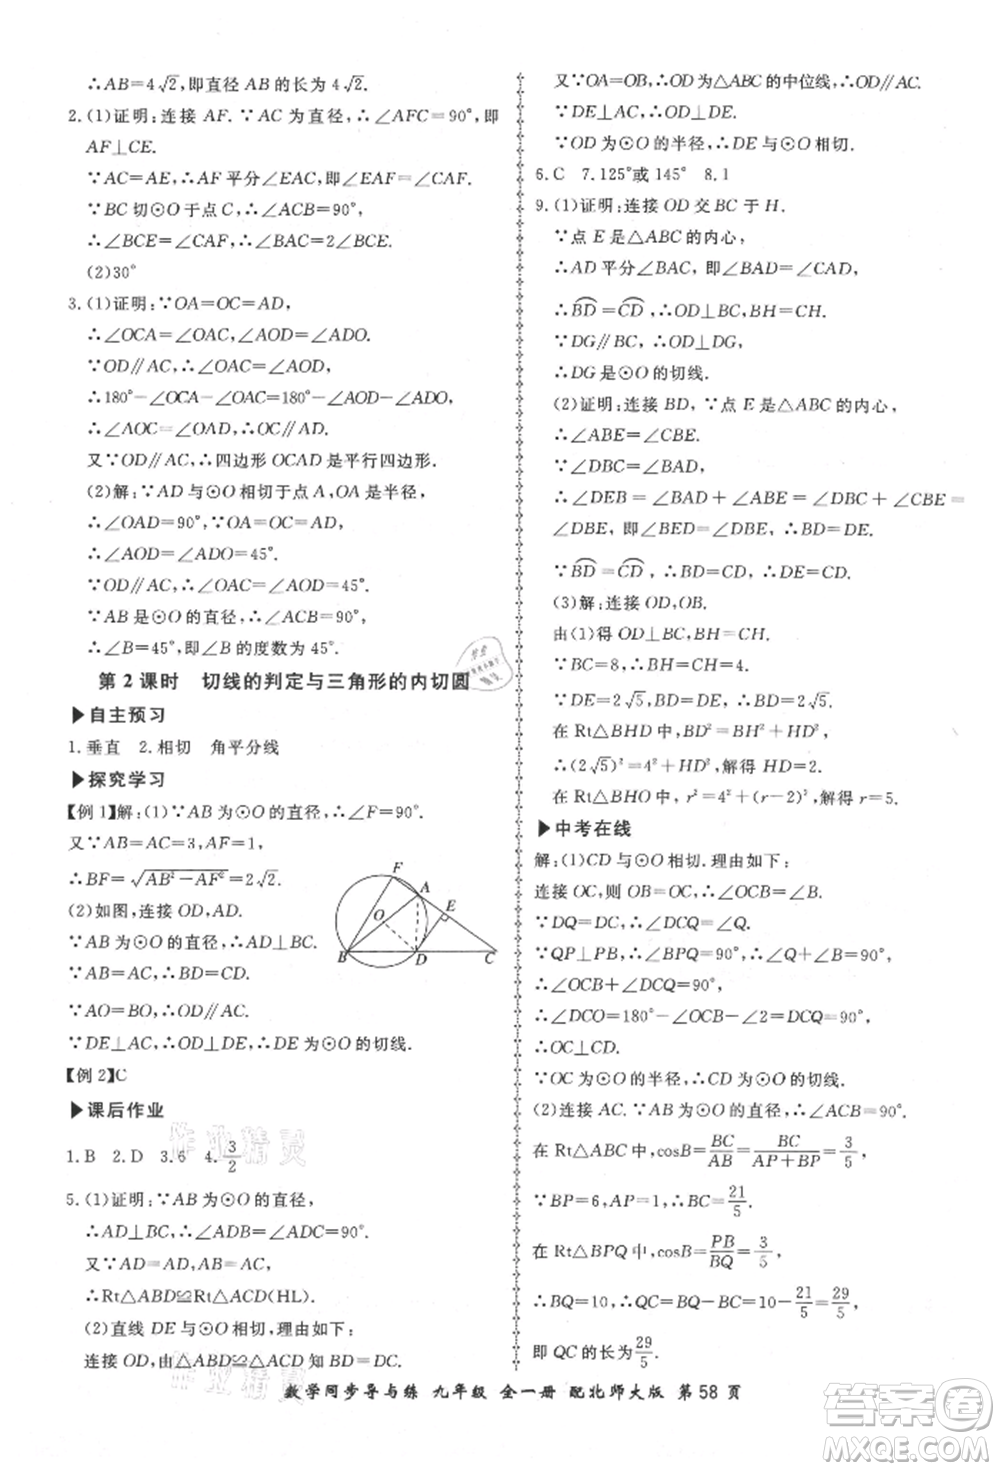 ∴AB=4√2,即直径 AB 的长为 4√2.
2.(1)证明:连接 AF.∵AC为直径,∴∠AFC=90°,即
AF⊥CE.
∵AC=AE,∴AF 平分∠EAC,即∠EAF=∠CAF.
∵BC 切⊙O 于点 C,∴∠ACB=90°,
∴∠BCE=∠CAF,∴∠BAC=2∠BCE.
(2)30°
3.(1)证明:∵OA=OC=AD,
∴∠OCA=∠OAC,∠AOD=∠ADO.
∵OD∥AC,∴∠OAC=∠AOD,
∴180°-∠OCA-∠OAC=180°-∠AOD-∠ADO,
∴∠AOC=∠OAD,∴OC∥AD.
又∵OD∥AC,∴四边形 OCAD 是平行四边形.
(2)解:∵AD 与⊙O 相切于点A,OA是半径,
∴∠OAD=90°.
∴∠AOD=∠ADO=45°.
∵OD∥AC,∴∠OAC=∠AOD=45°.
∵AB是⊙O 的直径,∴∠ACB=90°,
∴∠B=45°,即∠B 的度数为 45°.
第 2 课时 切线的判定与三角形的内切圆
▶自主预习
1.垂直 2.相切 角平分线
▶探究学习
【例 1】解:(1)∵AB 为⊙O 的直径,∴∠F=90°.
又∵AB=AC=3,AF=1,
∴BF=√AB²-AF²=2√2.
(2)如图,连接 OD,AD.
∵AB 为⊙O 的直径,∴AD⊥BC.
∵AB=AC,∴BD=CD.
∵AO=BO,∴OD∥AC.
∵DE⊥AC,∴OD⊥DE,∴DE 为⊙O 的切线.
F A E O B D C
【例 2】C
▶课后作业
1.B 2.D 3.6 4.3/2
5.(1)证明:∵AB 为⊙O 的直径,
∴AD⊥BC,∴∠ADB=∠ADC=90°.
又∵AD=AD,AB=AC,
∴Rt△ABD≌Rt△ACD(HL).
(2)直线 DE与⊙O 相切,理由如下:
连接 OD,由△ABD≌△ACD 知 BD=DC.
又∵OA=OB,∴OD为△ABC的中位线,∴OD∥AC.
∵DE⊥AC,∴OD⊥DE.
∵OD 为⊙O 的半径,∴DE 与⊙O 相切.
6.C 7.125°或 145° 8.1
9.(1)证明:连接 OD 交 BC 于 H.
∵点 E 是△ABC 的内心,
∴AD 平分∠BAC,即∠BAD=∠CAD,
∴BD=CD,∴OD⊥BC,BH=CH.
∵DG∥BC,∴OD⊥DG,
∴DG 是⊙O 的切线.
(2)证明:连接 BD,∵点 E 是△ABC 的内心,
∴∠ABE=∠CBE.
∴∠DEB=∠BAD+∠ABE=∠DBC+∠CBE=
∠DBE,即∠BED=∠DBE,∴BD=DE.
∵BD=CD,∴BD=CD,∴CD=DE.
(3)解:连接 OD,OB.
由(1)得 OD⊥BC,BH=CH.
∵BC=8,∴BH=CH=4.
∵DE=2√5,BD=DE,∴BD=2√5.
在 Rt△BHD 中,BD²=BH²+HD²,
∴(2√5)²=4²+HD²,解得 HD=2.
在 Rt△BHO 中,r²=4²+(r-2)²,解得 r=5.
▶中考在线
解:(1)CD 与⊙O 相切.理由如下:
连接 OC,则 OB=OC,∴∠OCB=∠B.
∵DQ=DC,∴∠DCQ=∠Q.
∵QP⊥PB,∴∠QPB=90°,∴∠Q+∠B=90°.
∴∠OCB+∠DCQ=90°,
∴∠DCO=180°-∠OCB-∠2=90°,
∴OC⊥CD.
∵OC 为⊙O 的半径,∴CD 与⊙O 相切.
(2)连接 AC,∵AB 为⊙O 的直径,∴∠ACB=90°.
在 Rt△ABC 中,cosB=BC/AB=BC/(AP+BP)=3/5.
∵BP=6,AP=1,∴BC=21/5.
在 Rt△BPQ 中,cosB=PB/BQ=3/5,
∴BQ=10,∴QC=BQ-BC=10-21/5=29/5,
即 QC 的长为29/5.
数学同步导与练 九年级 全一册 配北师大版 第 58 页
作业精灵
作业精灵
答案圈
MXQE.COM